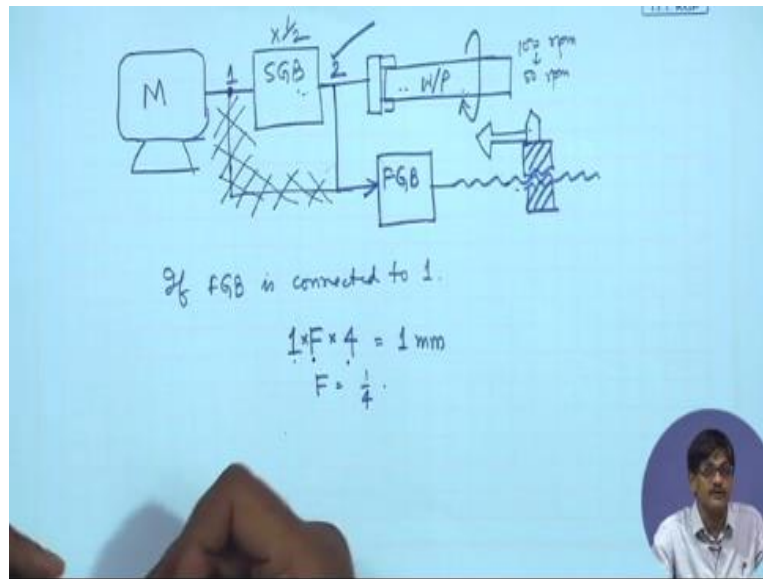 x 1/2
M
1
SGB
2
W/P
100 rpm
↓
50 rpm
FGB
If FGB is connected to 1.
1 × F × 4 = 1 mm
F = 1/4.